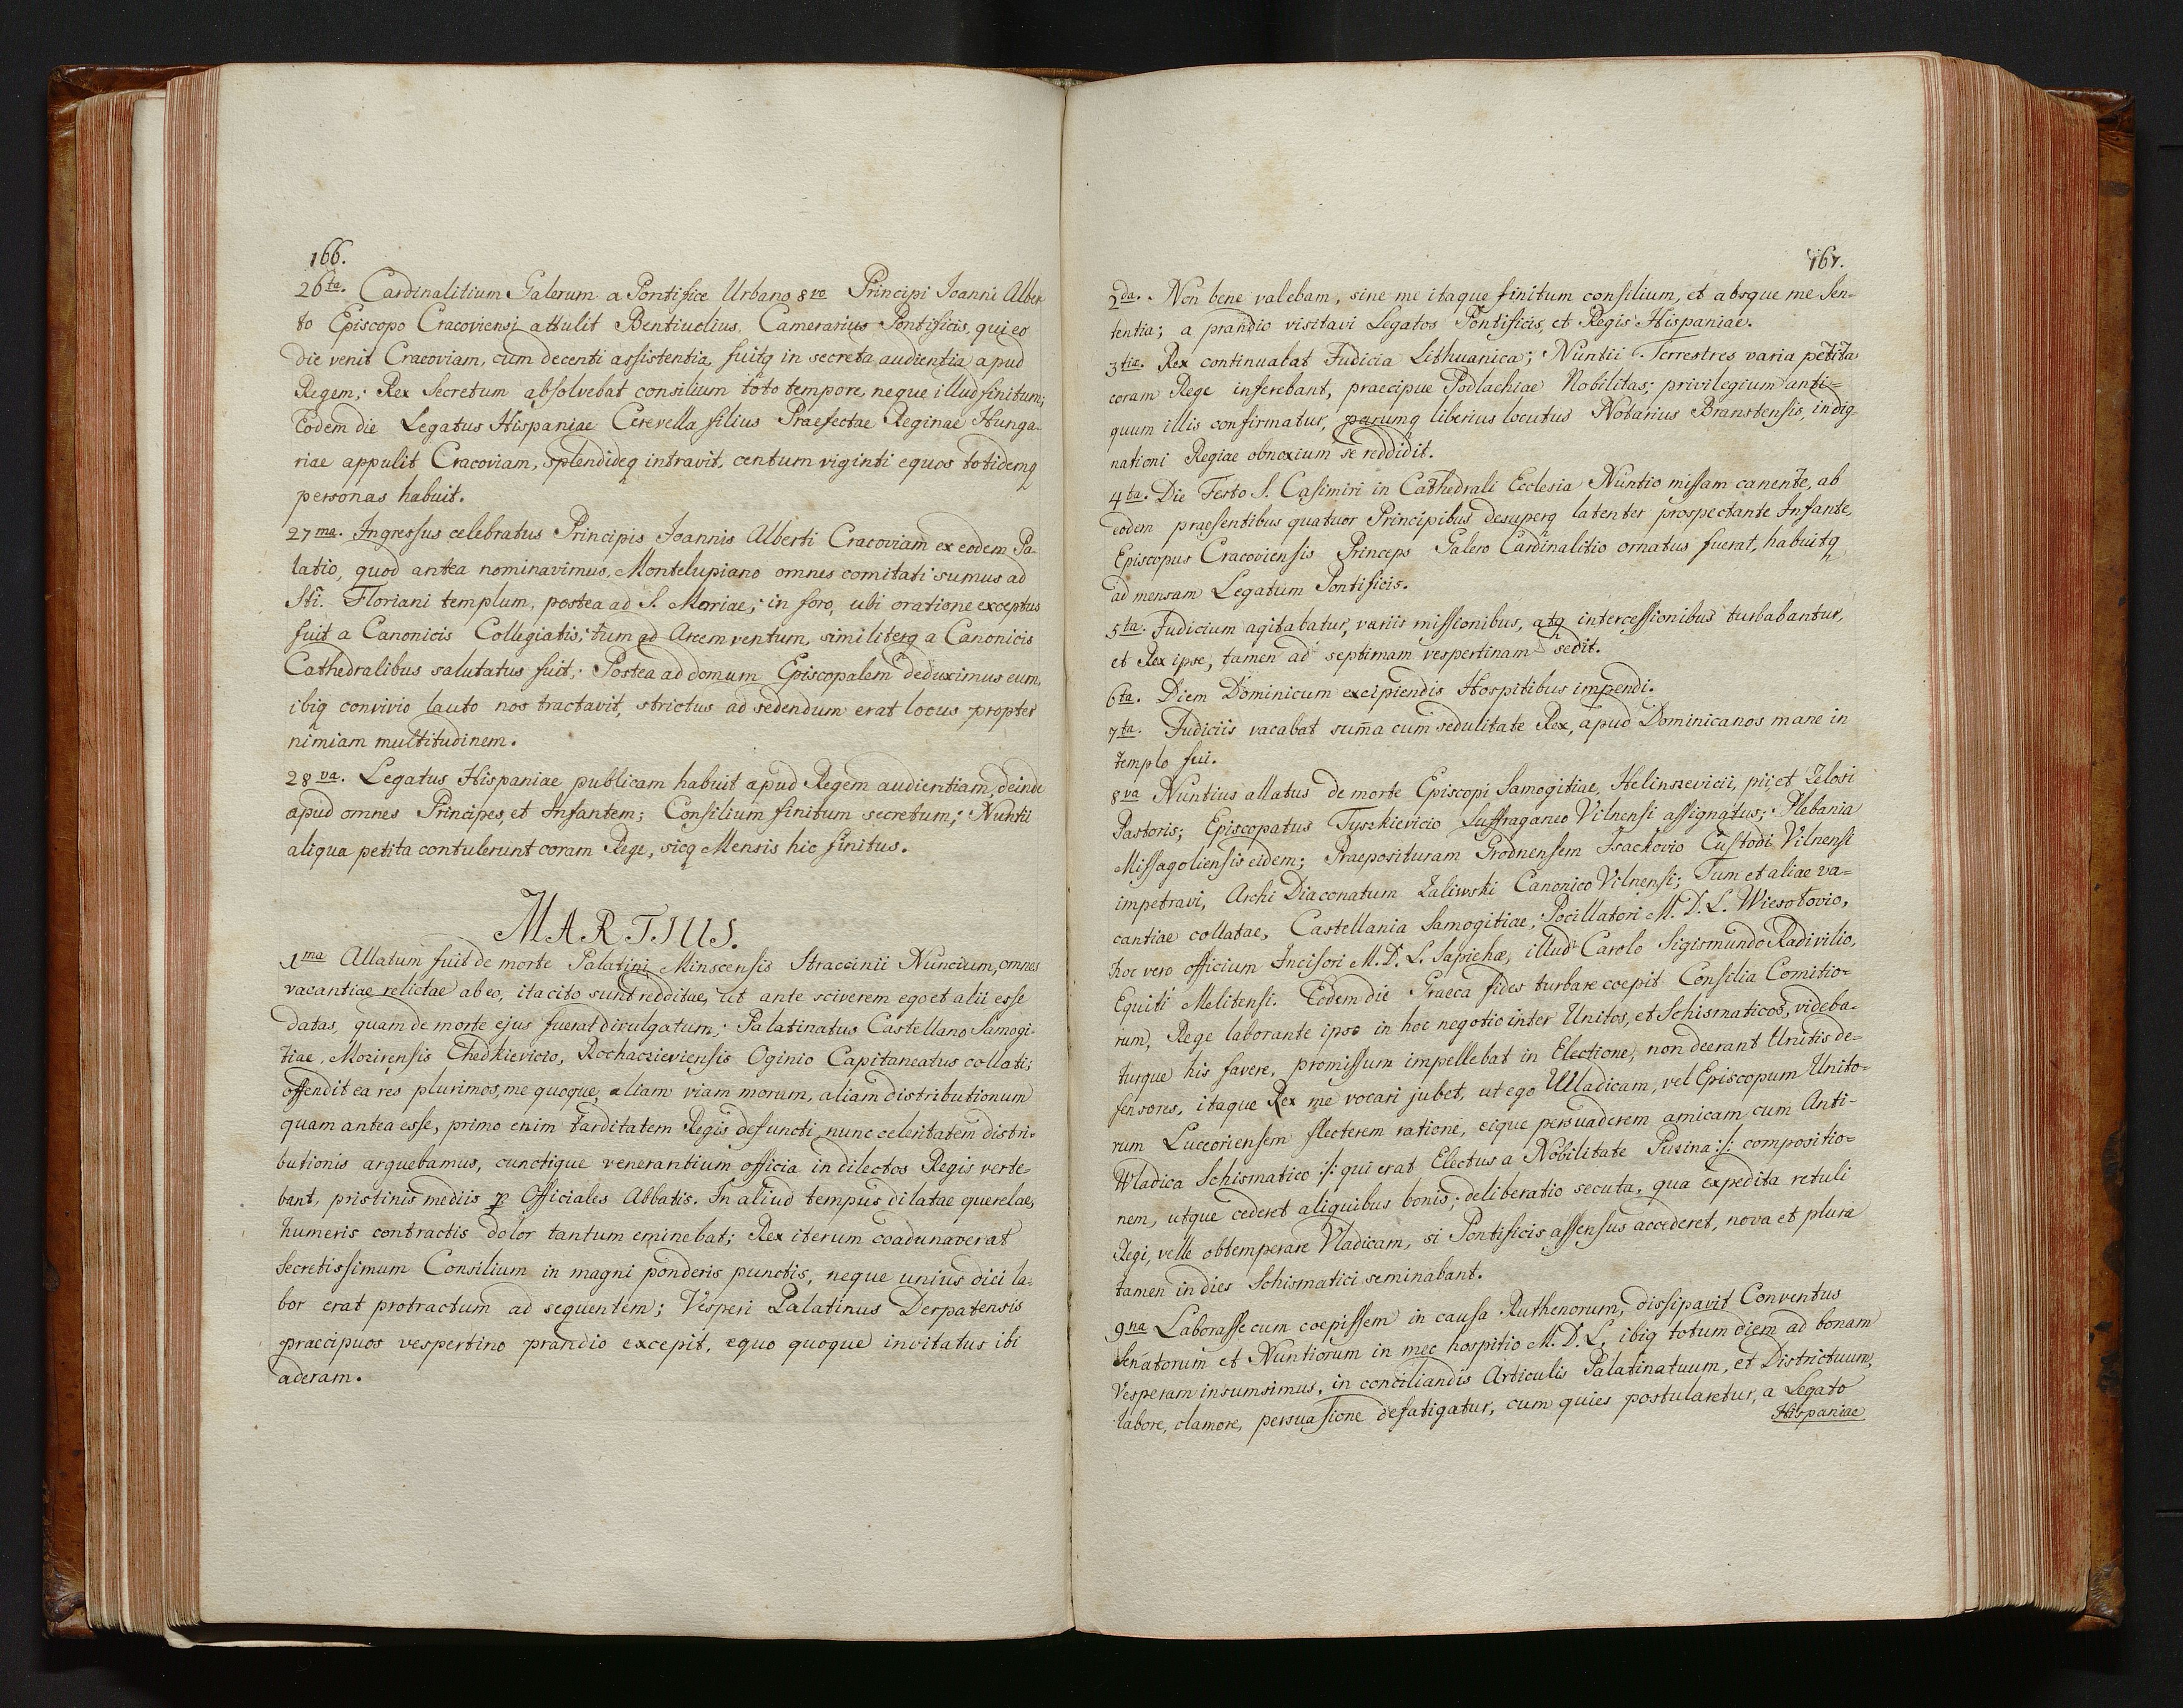 166.
26ta. Cardinalitium Galerum a Pontifice Urbano 8vo Principi Joanni Alber-
to Episcopo Cracoviensi attulit Bentiuolius, Camerarius Pontificis, qui eo
die venit Cracoviam, cum decenti assistentia, fuitq in secreta audientia apud
Regem; Rex Secretum absolvebat consilium toto tempore, neque illud finitum;
Eodem die Legatus Hispaniae Cerevella filius Praefectae Reginae Hunga-
riae appulit Cracoviam, splendideq intravit, centum viginti equos totidemq
personas habuit.
27ma. Ingressus celebratus Principis Joannis Alberti Cracoviam ex eodem Pa-
latio, quod antea nominavimus, Montelupiano omnes comitati sumus ad
Sti. Floriani templum, postea ad S. Mariae; in foro, ubi oratione exceptus
fuit a Canonicis Collegiatis; tum ad Arcem ventum, similiterq a Canonicis
Cathedralibus salutatus fuit; Postea ad domum Episcopalem deduximus eum,
ibiq convivio lauto nos tractavit, strictus ad sedendum erat locus propter
nimiam multitudinem.
28va. Legatus Hispaniae publicam habuit apud Regem audientiam, deinde
apud omnes Principes, et Infantem; Consilium finitum secretum; Nuntii
aliqua petita contulerunt coram Rege, sicq Mensis hic finitus.
MARTIUS.
1ma Allatum fuit de morte Palatini Minscensis Straccinii Nuncium, omnes
vacantiae relictae ab eo, ita cito sunt redditae, ut ante sciverem ego et alii esse
datas, quam de morte ejus fuerat divulgatum; Palatinatus Castellano Samogi-
tiae, Mozirensis Chedkievicio, Rochaczieviensis Oginio Capitaneatus collati;
offendit ea res plurimos, me quoque, aliam viam morum, aliam distributionum
quam antea esse, primo enim tarditatem Regis defuncti nunc celeritatem distri-
butionis arguebamus, cunctique venerantium officia in dilectos Regis verte-
bant, pristinis mediis p Officiales Abbatis. In aliud tempus dilatae querelae,
humeris contractis dolor tantum eminebat; Rex iterum coadunaverat
Secretissimum Consilium in magni ponderis punctis, neque unius diei la-
bor erat protractum ad sequentem; Vesperi Palatinus Derpatensis
praecipuos vespertino prandio excepit, equo quoque invitatus ibi
aderam.
167.
2da. Non bene valebam, sine me itaque finitum consilium, et absque me Sen-
tentia; a prandio visitavi Legatos Pontificis, et Regis Hispaniae.
3tia. Rex continuabat Judicia Lithuanica; Nuntii Terrestres varia petita
coram Rege inferebant, praecipue Podlachiae Nobilitas; privilegium anti-
quum illis confirmatur, parumq liberius locutus Notarius Branstensis, indig-
nationi Regiae obnoxium se reddidit.
4ta. Die Festo S. Casimiri in Cathedrali Ecclesia Nuntio missam canente, ab
eodem praesentibus quatuor Principibus desuperq latenter prospectante Infante,
Episcopus Cracoviensis Princeps Galero Cardinalitio ornatus fuerat, habuitq
ad mensam Legatum Pontificis.
5ta. Judicium agitabatur, variis missionibus, atq intercessionibus turbabantur,
et Rex ipse, tamen ad septimam vespertinam sedit.
6ta. Diem Dominicum excipiendis Hospitibus impendi.
7ta. Judiciis vacabat suma cum sedulitate Rex, apud Dominicanos mane in
templo fui.
8va Nuntius allatus de morte Episcopi Samogitiae, Helinszevicii, pii, et Zelosi
Pastoris; Episcopatus Tyszkievicio Suffraganeo Vilnensi assignatus; Plebania
Missagoliensis eidem; Praeposituram Grodnensem Isackovio Custodi Vilnensi
impetravi, Archi Diaconatum Zaliwski Canonico Vilnensi; Tum et aliae va-
cantiae collatae, Castellania Samogitiae, Pocillatori M. D. L. Wiesotovio,
hoc vero officium Incisori M. D. L. Sapiehæ, illud Carolo Sigismundo Radivilio,
Equiti Melitensi. Eodem die Graeca fides turbare coepit Consilia Comitio-
rum, Rege laborante ipso in hoc negotio inter Unitos, et Schismaticos, videba-
turque his favere, promissum impellebat in Electione, non deerant Unitis de-
fensores, itaque Rex me vocari jubet, ut ego Wladicam, vel Episcopum Unito-
rum Luceoriensem flecterem ratione, eique persuaderem amicam cum Anti-
Wladica Schismatico :/: qui erat Electus a Nobilitate Puzina :/: compositio-
nem, utque cederet aliquibus bonis; deliberatio secuta, qua expedita retuli
Regi, velle obtemperare Vladicam, si Pontificis assensus accederet, nova et plura
tamen in dies Schismatici seminabant.
9na Laborasse cum coepissem in causa Ruthenorum, dissipavit Conventus
Senatorum et Nuntiorum in meo hospitio M. D. L. ibiq totum diem ad bonam
Vesperam insumsimus, in conciliandis Articulis Palatinatuum, et Districtuum,
labore, clamore, persuasione defatigatur, cum quies postularetur, a Legato
Hispaniae